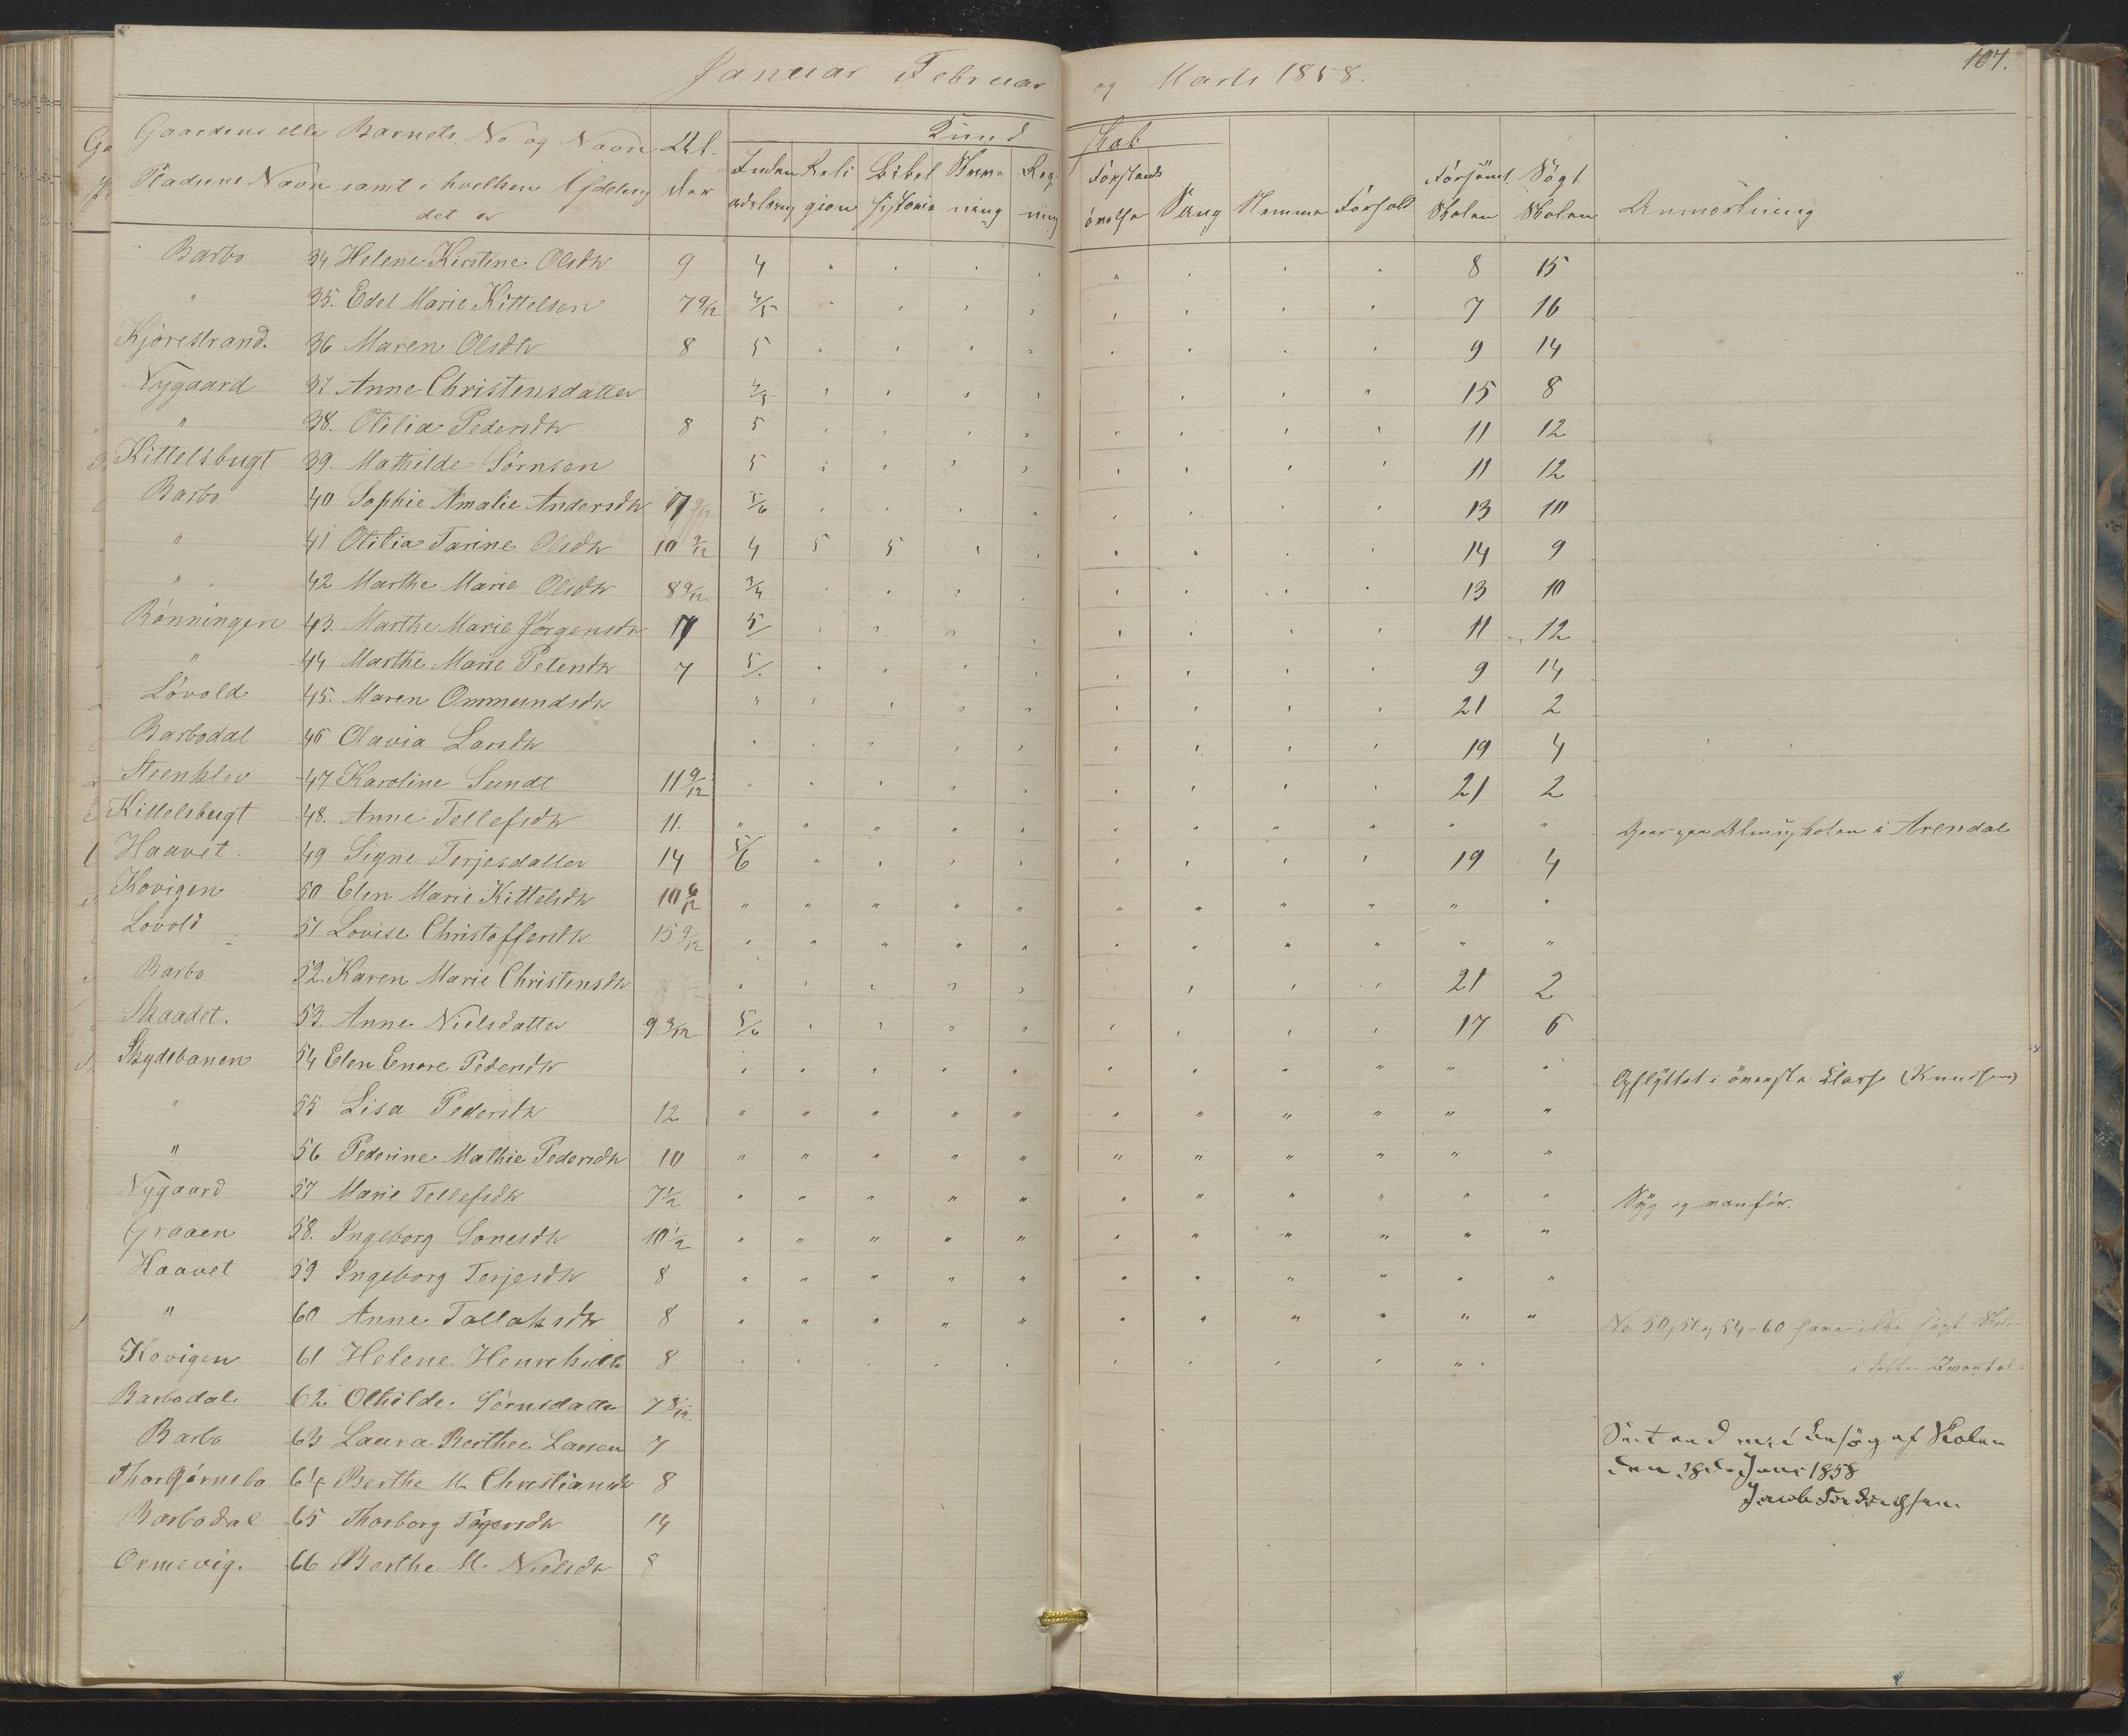 Januar Februar og Marts 1858. 107.
Gaardens eller Pladsens Navn Barnets No og Navn samt i hvilken Afdeling det er Alder Kundskab Indenadslæsning Religion Bibelhistorie Skrivning Regning Forstandsøvelse Sang Nemme Forhold Forsømt Skolen Søgt Skolen Anmærkning
Barbo 34 Helene Kirstine Olsdtr 9 4 " " " " " " " " 8 15
" 35. Edel Marie Kittelsen 7 9/12 4/5 " " " " " " " " 7 16
Kjørestrand. 36 Maren Olsdtr 8 5 " " " " " " " " 9 14
Nygaard 37 Anne Christensdatter 4/5 " " " " " " " 15 8
" 38. Otilia Pedersdtr 8 5 " " " " " " " " 11 12
Kittelsbugt 39. Mathilde Sørnsen 5 " " " " " " " " 11 12
Barbo 40 Sophie Amalie Andersdtr 7 9/12 5/6 " " " " " " " " 13 10
" 41 Otilia Tarine Olsdtr 10 9/12 4 5 5 " " " " " " 14 9
" 42 Marthe Marie Olsdtr 8 9/12 3/4 " " " " " " " " 13 10
Rønningen 43. Marthe Marie Jørgensdtr 7 5/ " " " " " " " " 11 12
" 44 Marthe Marie Petersdtr 7 5/ " " " " " " " " 9 14
Løvold 45. Maren Ommundsdtr " " " " " " " " " 21 2
Barbodal 46 Olavia Larsdtr " " " " " " " " " 19 4
Steenklev 47 Karoline Sundt 11 9/12 " " " " " " " " " 21 2
Kittelsbugt 48. Anne Tellefsdtr 11. " " " " " " " " " " " Gaar paa Almuskolen i Arendal
Haavet. 49 Signe Terjesdatter 14 5/6 " " " " " " " " 19 4
Kovigen 50 Elen Marie Kittelsdtr 10 6/12 " " " " " " " " " " "
Lovold 51 Lovise Christoffersdtr 15 9/12 " " " " " " " " " " "
Barbo 52. Karen Marie Christensdtr " " " " " " " " 21 2
Skaadet. 53. Anne Nielsdatter 9 3/12 5/6 " " " " " " " " 17 6
Skydebanen 54 Elen Enore Pedersdtr " " " " " " " " " " " Opflyttet i øverste Klasse (Knudsen)
" 55 Lisa Pedersdtr 12 " " " " " " " " " " "
" 56 Pederine Mathie Pedersdtr 10 " " " " " " " " " " "
Nygaard 57 Marie Tellefsdtr 7 1/2 " " " " " " " " " " " Syg og vanfør.
Graaen 58. Ingeborg Lonesdtr 10 1/2 " " " " " " " " " " "
Haavet 59 Ingeborg Terjesdtr 8 " " " " " " " " " " "
" 60 Anne Tallaksdtr 8 " " " " " " " " " " " No. 50, 51 og 54-60 have ikke søgt Skolen
Kovigen 61 Helene Henriksdtr 8 " " " " " " " " " i dette Qvartal.
Barbodal 62 Othilde Sørnsdatter 7 3/12
Barbo 63 Laura Berthee Larsen 7 Seet ved mit Besøg af Skolen
Thorbjørnsbo 64 Berthe M. Christiansdtr 8 den 28de Juni 1858
Barbodal 65 Thorborg Tøgersdtr 14 Jacob Fredrichsen.
Ormevig. 66 Berthe M. Nielsdtr 8